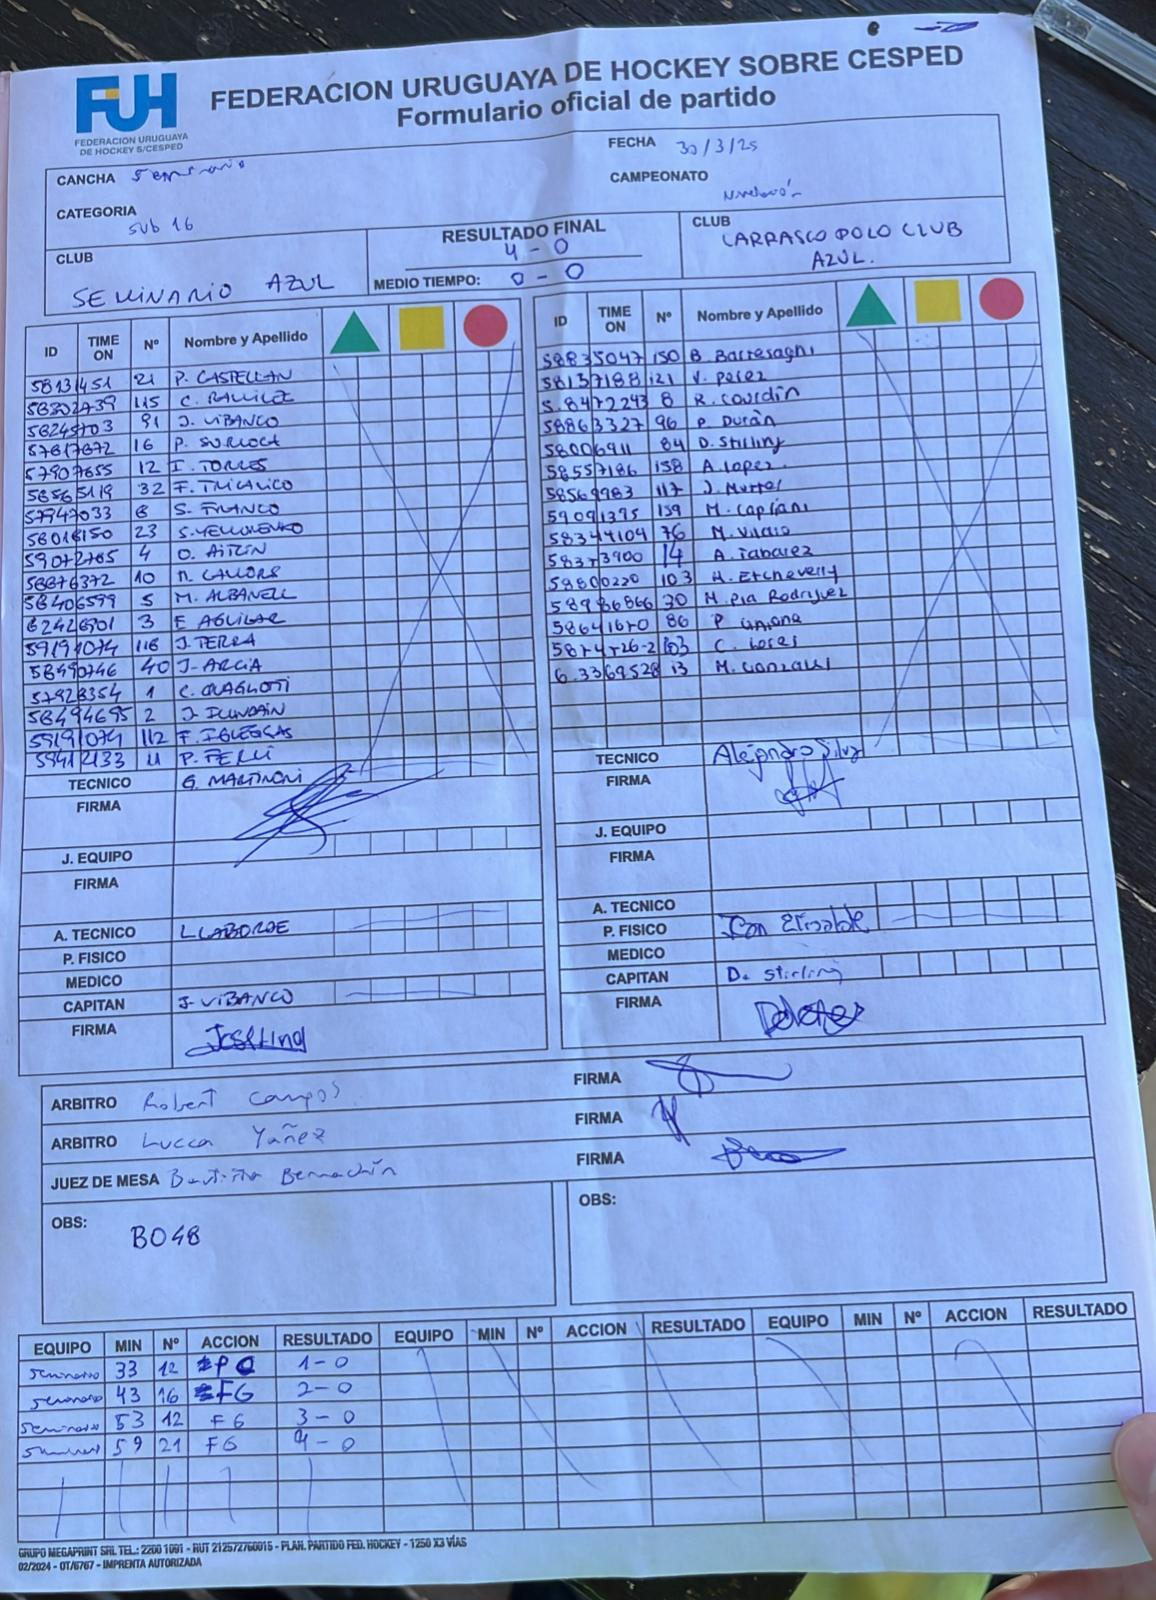 FUH
FEDERACION URUGUAYA
DE HOCKEY S/CESPED
FEDERACION URUGUAYA DE HOCKEY SOBRE CESPED
Formulario oficial de partido
CANCHA Seminario
FECHA 30/3/25
CATEGORIA Sub 16
CAMPEONATO Nivelación
CLUB SEMINARIO AZUL
RESULTADO FINAL 4-0
MEDIO TIEMPO: 0-0
CLUB CARRASCO POLO CLUB AZUL.
ID TIME ON Nº Nombre y Apellido
58131451 21 P. CASTELLAN
58302739 115 C.
58245703 91 J. VIBANCO
57817872 16 P.
57907655 12 I. TORRES
58565119 32 F. TRICANICO
57947033 8 S. FRANCO
58018150 23 S.
59072785 4 O.
58876372 10 M.
58406599 5 M. ALBANELL
62426901 3 F. AGUILAR
59191074 118 J. TERRA
58490746 40 J. ARCIA
57928354 1 C.
58494695 2 J. ILUNDAIN
59191074 112 F. IGLESIAS
59412133 11 P.
TECNICO G. MARTINONI
FIRMA
J. EQUIPO
FIRMA
A. TECNICO L LABORDE
P. FISICO
MEDICO
CAPITAN J. VIBANCO
FIRMA
ID TIME ON Nº Nombre y Apellido
58835047 150 B. Barresaghi
58137188 121 V. Perez
5.8472243 8 R. Gourdin
58863327 96 P. Durán
58006911 84 D. Stirling
58557186 158 A. Lopez.
58569983 117 J.
59091375 159 M. Capifani
58344104 76 M.
58373900 14 A. Tabarez
58800220 103 M. Etcheverry
58986866 30 M. Pia Rodriguez
58641670 86 P.
C.
6.3369528 13 M. Gonzalez
TECNICO Alejandro Silva
FIRMA
J. EQUIPO
FIRMA
A. TECNICO
P. FISICO
MEDICO
CAPITAN D. Stirling
FIRMA
ARBITRO Robert Campos
FIRMA
ARBITRO Lucca Yañez
FIRMA
JUEZ DE MESA Bautista Bernachin
FIRMA
OBS: BO4B
OBS:
EQUIPO MIN Nº ACCION RESULTADO EQUIPO MIN Nº ACCION RESULTADO EQUIPO MIN Nº ACCION RESULTADO
Seminario 33 12 PC 1-0
Seminario 43 16 FG 2-0
Seminario 53 12 FG 3-0
Seminario 59 21 FG 4-0
GRUPO MEGAPRINT SRL TEL.: 2200 1091 - RUT 212572760015 - PLAN. PARTIDO FED. HOCKEY - 1250 X3 VÍAS
02/2024 - OT/6767 - IMPRENTA AUTORIZADA